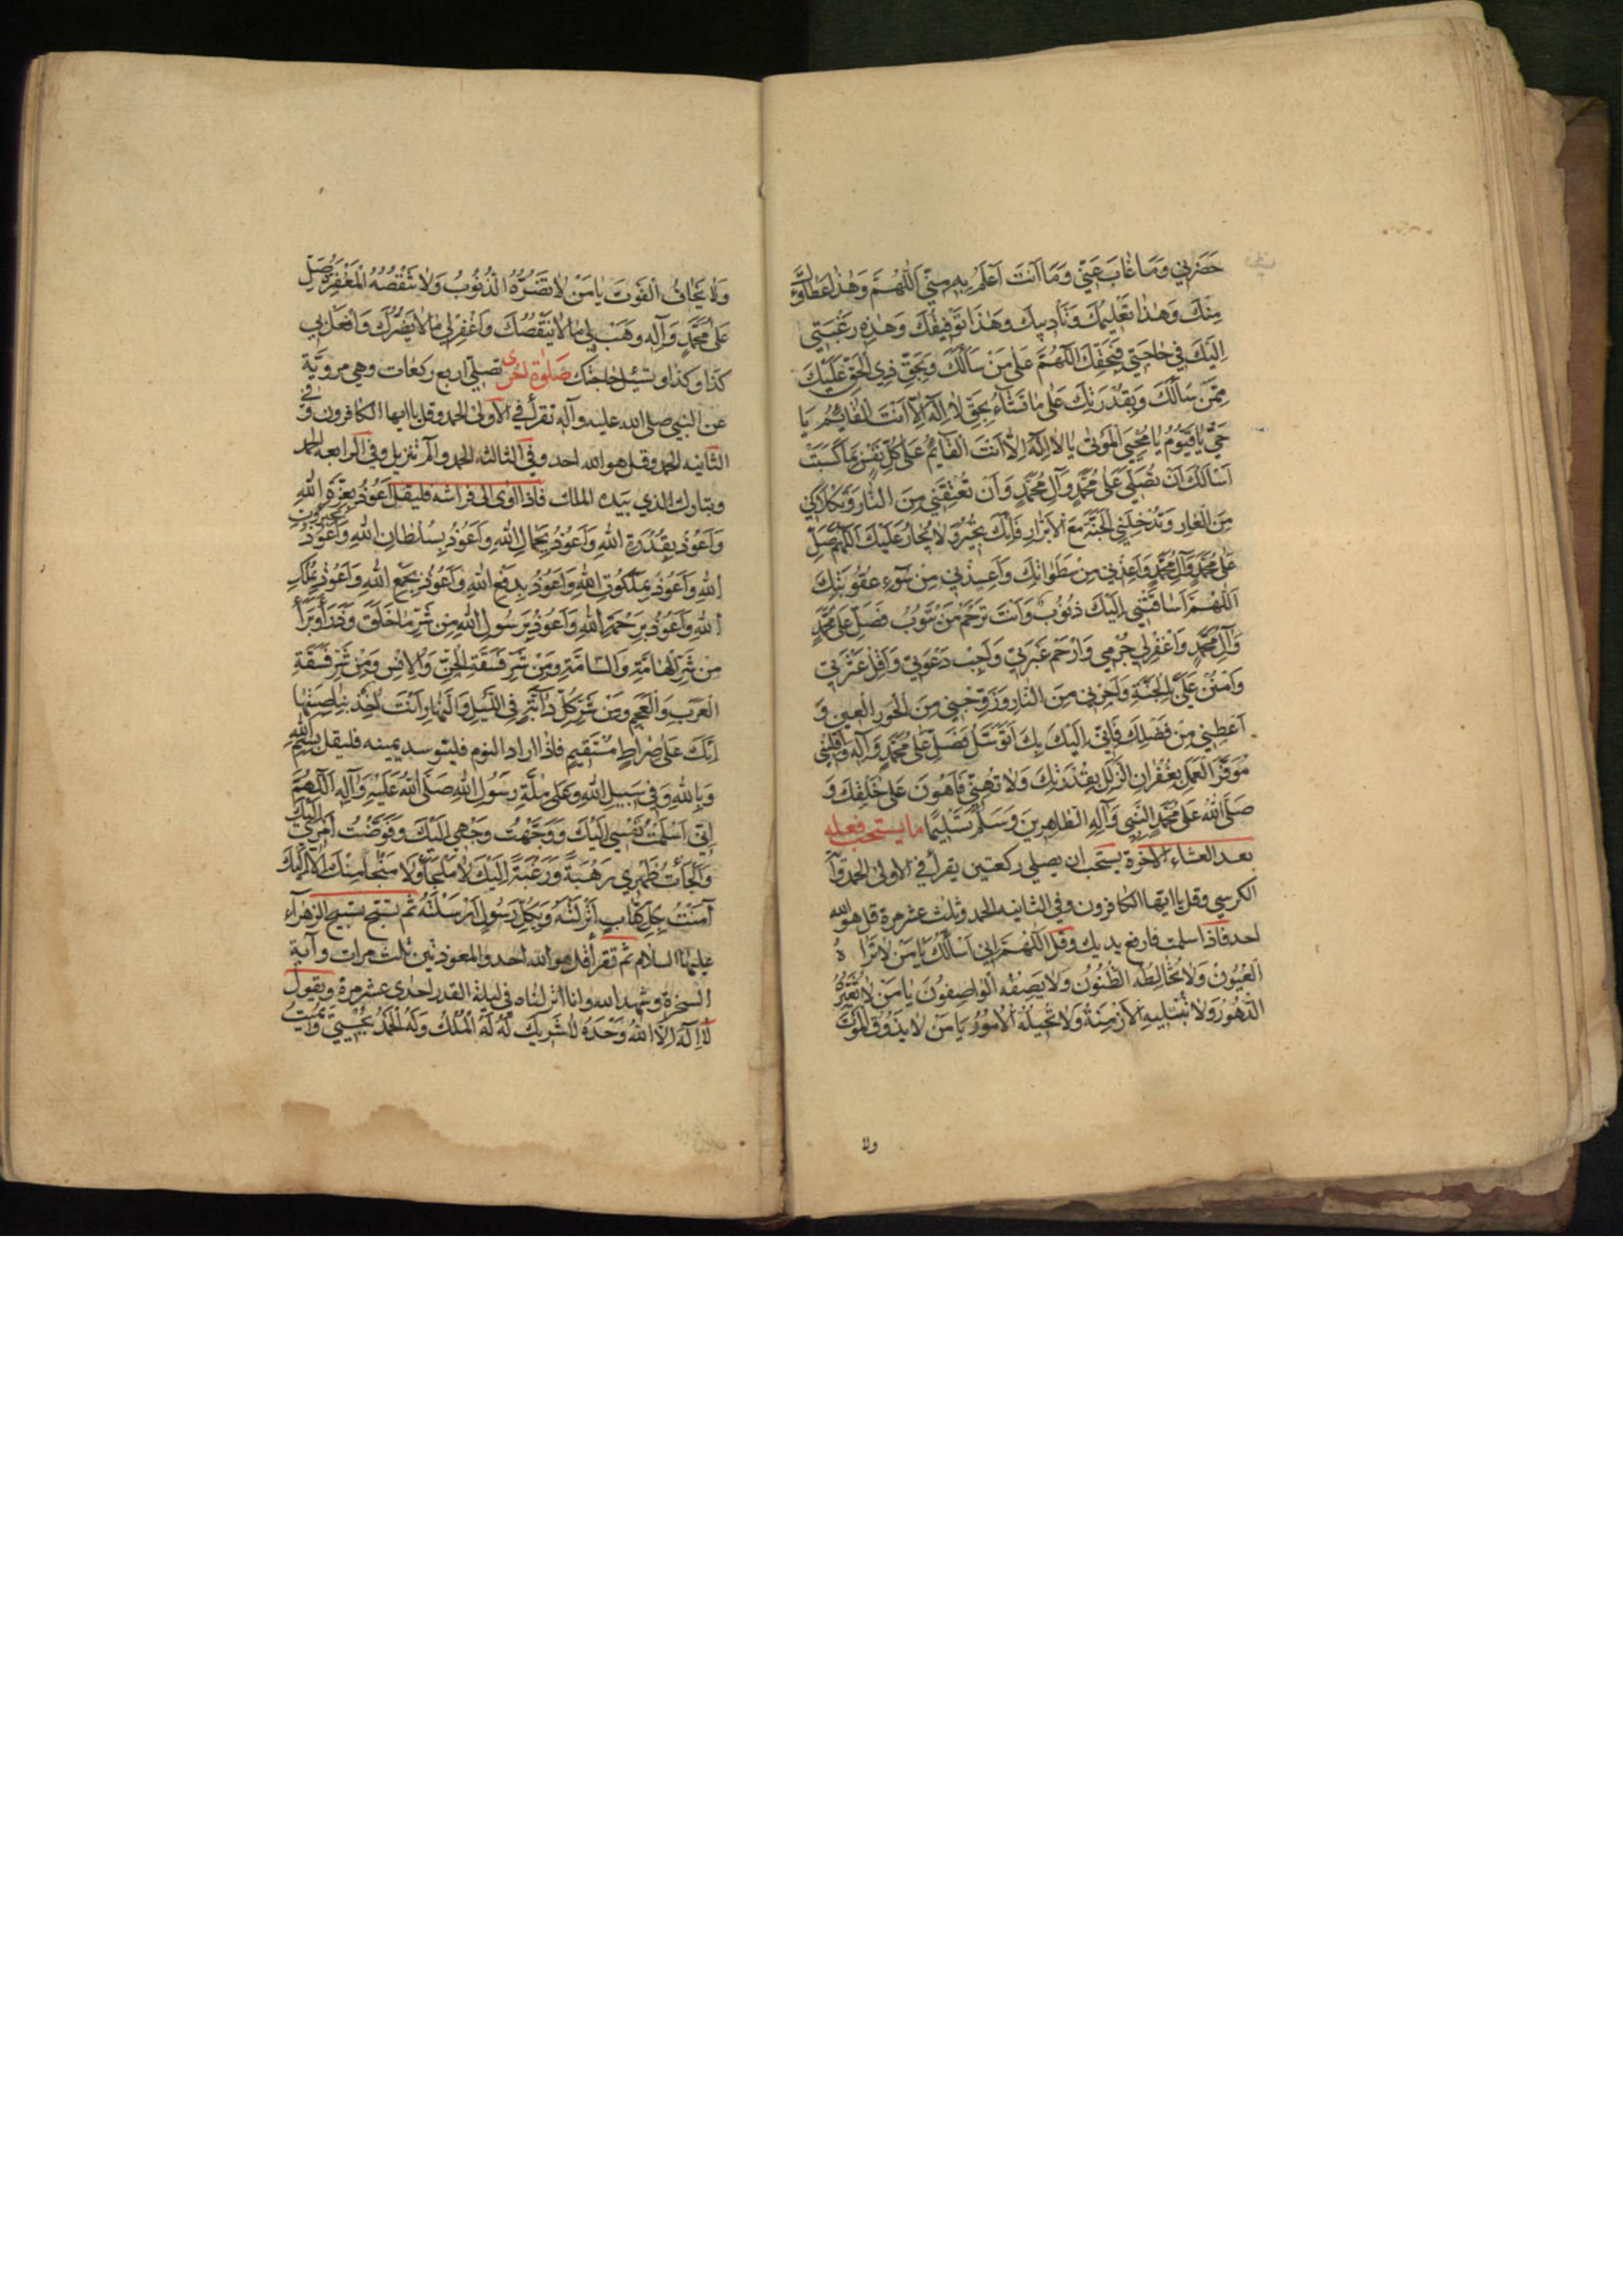 حَضَرَنِي وَمَا غَابَ عَنِّي وَمَا اَنْتَ اَعْلَمُ بِهِ مِنِّي اَللّٰهُمَّ وَهٰذَا عَطَاؤُكَ
مِنْكَ وَهٰذَا تَعْلِيمُكَ وَتَأدِيبُكَ وَهٰذَا تَوْفِيقُكَ وَهٰذِهِ رَغْبَتِي
اِلَيْكَ فِي حٰاجَتِي فَبِحَقِّكَ اللّٰهُمَّ عَلٰى مَنْ سَأَلَكَ وَبِحَقِّ ذِي الْحَقِّ عَلَيْكَ
مِمَّنْ سَأَلَكَ وَبِقُدْرَتِكَ عَلٰى مٰا تَشٰاءُ بِحَقِّ لاٰ اِلٰهَ اِلاّٰ اَنْتَ يَا
حَيُّ يٰا قَيُّومُ يٰا مُحْيِيَ الْمَوْتٰى يٰا لاٰ اِلٰهَ اِلاّٰ اَنْتَ الْقٰائِمُ عَلٰى كُلِّ نَفْسٍ بِمٰا كَسَبَتْ
اَسْأَلُكَ اَنْ تُصَلِّيَ عَلٰى مُحَمَّدٍ وَآلِ مُحَمَّدٍ وَاَنْ تُعْتِقَنِي مِنَ النّٰارِ وَتَكْلَأَنِي
مِنَ الْعٰارِ وَتُدْخِلَنِي الْجَنَّةَ مَعَ الْأَبْرٰارِ فَاِنَّكَ تُجِيرُ وَلاٰ يُجٰارُ عَلَيْكَ اَللّٰهُمَّ صَلِّ
عَلٰى مُحَمَّدٍ وَآلِ مُحَمَّدٍ وَاَعِذْنِي مِنْ سَطَوٰاتِكَ وَاَعِذْنِي مِنْ سُوۤءِ عُقُوبَتِكَ
اَللّٰهُمَّ سٰاقَتْنِي اِلَيْكَ ذُنُوبٌ وَاَنْتَ تَرْحَمُ مَنْ يَتُوبُ فَصَلِّ عَلٰى مُحَمَّدٍ
وَآلِ مُحَمَّدٍ وَاغْفِرْ لِي جُرْمِي وَارْحَمْ عَبْرَتِي وَاَجِبْ دَعْوَتِي وَاَقِلْ عَثْرَتِي
وَامْنُنْ عَلَيَّ بِالْجَنَّةِ وَاَجِرْنِي مِنَ النّٰارِ وَزَوِّجْنِي مِنَ الْحُورِ الْعِينِ وَ
اَعْطِنِي مِنْ فَضْلِكَ فَاِنِّي اِلَيْكَ بِكَ اَتَوَسَّلُ فَصَلِّ عَلٰى مُحَمَّدٍ وَآلِهِ وَاقْلِبْنِي
مُوَفَّرَ الْعَمَلِ بِغُفْرٰانِ الزَّلَلِ بِقُدْرَتِكَ وَلاٰ تُهِنِّي فَأَهُونَ عَلٰى خَلْقِكَ وَ
صَلَّى اللّٰهُ عَلٰى مُحَمَّدٍ النَّبِيِ وَآلِهِ الطّٰاهِرِينَ وَسَلَّمَ تَسْلِيمًا ما يستحب فعله
بعد العشاء الاخرة يستحب ان يصلي ركعتين يقرأ في الاولى الحمد وآية
الكرسي وقل يا ايها الكافرون وفي الثانيه الحمد وثلث عشر مرة قل هو الله
احد فاذا سلمت فارفع يديك وقل اَللّٰهُمَّ اِنِّي اَسْأَلُكَ يٰا مَنْ لاٰ تَرٰاهُ
الْعُيُونُ وَلاٰ تُخٰالِطُهُ الظُّنُونُ وَلاٰ يَصِفُهُ الْوٰاصِفُونَ يٰا مَنْ لاٰ تُغَيِّرُهُ
الدُّهُورُ وَلاٰ تُبْلِيهِ الْأَزْمِنَةُ وَلاٰ تُحِيلُهُ الْأُمُورُ يٰا مَنْ لاٰ يَذُوقُ الْمَوْتَ
ولا
وَلاٰ يَخٰافُ الْفَوْتَ يٰا مَنْ لاٰ تَضُرُّهُ الذُّنُوبُ وَلاٰ تَنْقُصُهُ الْمَغْفِرَةُ صَلِّ
عَلٰى مُحَمَّدٍ وَآلِهِ وَهَبْ لِي مٰا لاٰ يَنْقُصُكَ وَاغْفِرْ لِي مٰا لاٰ يَضُرُّكَ وَافْعَلْ بِي
كَذٰا وَكَذٰا وتسئل حاجتك صلوة اخرى تصلي اربع ركعات وهي مروية
عن النبي صلى الله عليه وآله تقرأ في الاولى الحمد وقل يا ايها الكافرون وفي
الثانيه الحمد وقل هو الله احد وفي الثالثه الحمد والم تنزيل وفي الرابعه الحمد
وتبارك الذي بيده الملك فاذا اوى الى فراشه فليقل اَعُوذُ بِعِزَّةِ اللّٰهِ
وَاَعُوذُ بِقُدْرَةِ اللّٰهِ وَاَعُوذُ بِجَمٰالِ اللّٰهِ وَاَعُوذُ بِسُلْطٰانِ اللّٰهِ وَاَعُوذُ بِجَبَرُوتِ
اللّٰهِ وَاَعُوذُ بِمَلَكُوتِ اللّٰهِ وَاَعُوذُ بِدَفْعِ اللّٰهِ وَاَعُوذُ بِجَمْعِ اللّٰهِ وَاَعُوذُ بِمُلْكِ
اللّٰهِ وَاَعُوذُ بِرَحْمَةِ اللّٰهِ وَاَعُوذُ بِرَسُولِ اللّٰهِ مِنْ شَرِّ مٰا خَلَقَ وَذَرَأَ وَبَرَأَ
مِنْ شَرِّ الْهٰامَّةِ وَالسّٰامَّةِ وَمِنْ شَرِّ فَسَقَةِ الْجِنِّ وَالْاِنْسِ وَمِنْ شَرِّ فَسَقَةِ
الْعَرَبِ وَالْعَجَمِ وَمِنْ شَرِّ كُلِّ دٰابَّةٍ فِي اللَّيْلِ وَالنَّهٰارِ اَنْتَ آخِذٌ بِنٰاصِيَتِهٰا
اِنَّكَ عَلٰى صِرٰاطٍ مُسْتَقِيمٍ فاذا اراد النوم فليتوسد يمينه فليقل بِسْمِ اللّٰهِ
وَبِاللّٰهِ وَفِي سَبِيلِ اللّٰهِ وَعَلٰى مِلَّةِ رَسُولِ اللّٰهِ صَلَّى اللّٰهُ عَلَيْهِ وَآلِهِ اَللّٰهُمَّ
اِنِّي اَسْلَمْتُ نَفْسِي اِلَيْكَ وَوَجَّهْتُ وَجْهِي اِلَيْكَ وَفَوَّضْتُ اَمْرِي اِلَيْكَ
وَاَلْجَأْتُ ظَهْرِي رَهْبَةً وَرَغْبَةً اِلَيْكَ لاٰ مَلْجَأَ وَلاٰ مَنْجٰا مِنْكَ اِلاّٰ اِلَيْكَ
آمَنْتُ بِكُلِّ كِتٰابٍ اَنْزَلْتَهُ وَبِكُلِّ رَسُولٍ اَرْسَلْتَهُ ثم تسبح تسبيح الزهراء
عليها السلام ثم تقرأ قل هو الله احد والمعوذتين ثلث مرات وآية
السخرة وشهد الله وانا انزلناه في ليلة القدر احدى عشر مرة ويقول
لاٰ اِلٰهَ اِلاَّ اللّٰهُ وَحْدَهُ لاٰ شَرِيكَ لَهُ لَهُ الْمُلْكُ وَلَهُ الْحَمْدُ يُحْيِي وَيُمِيتُ